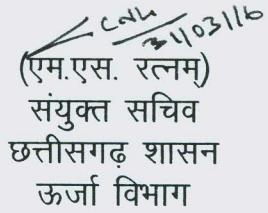 31/03/16
(एम.एस. रत्नम्)
संयुक्त सचिव
छत्तीसगढ़ शासन
ऊर्जा विभाग